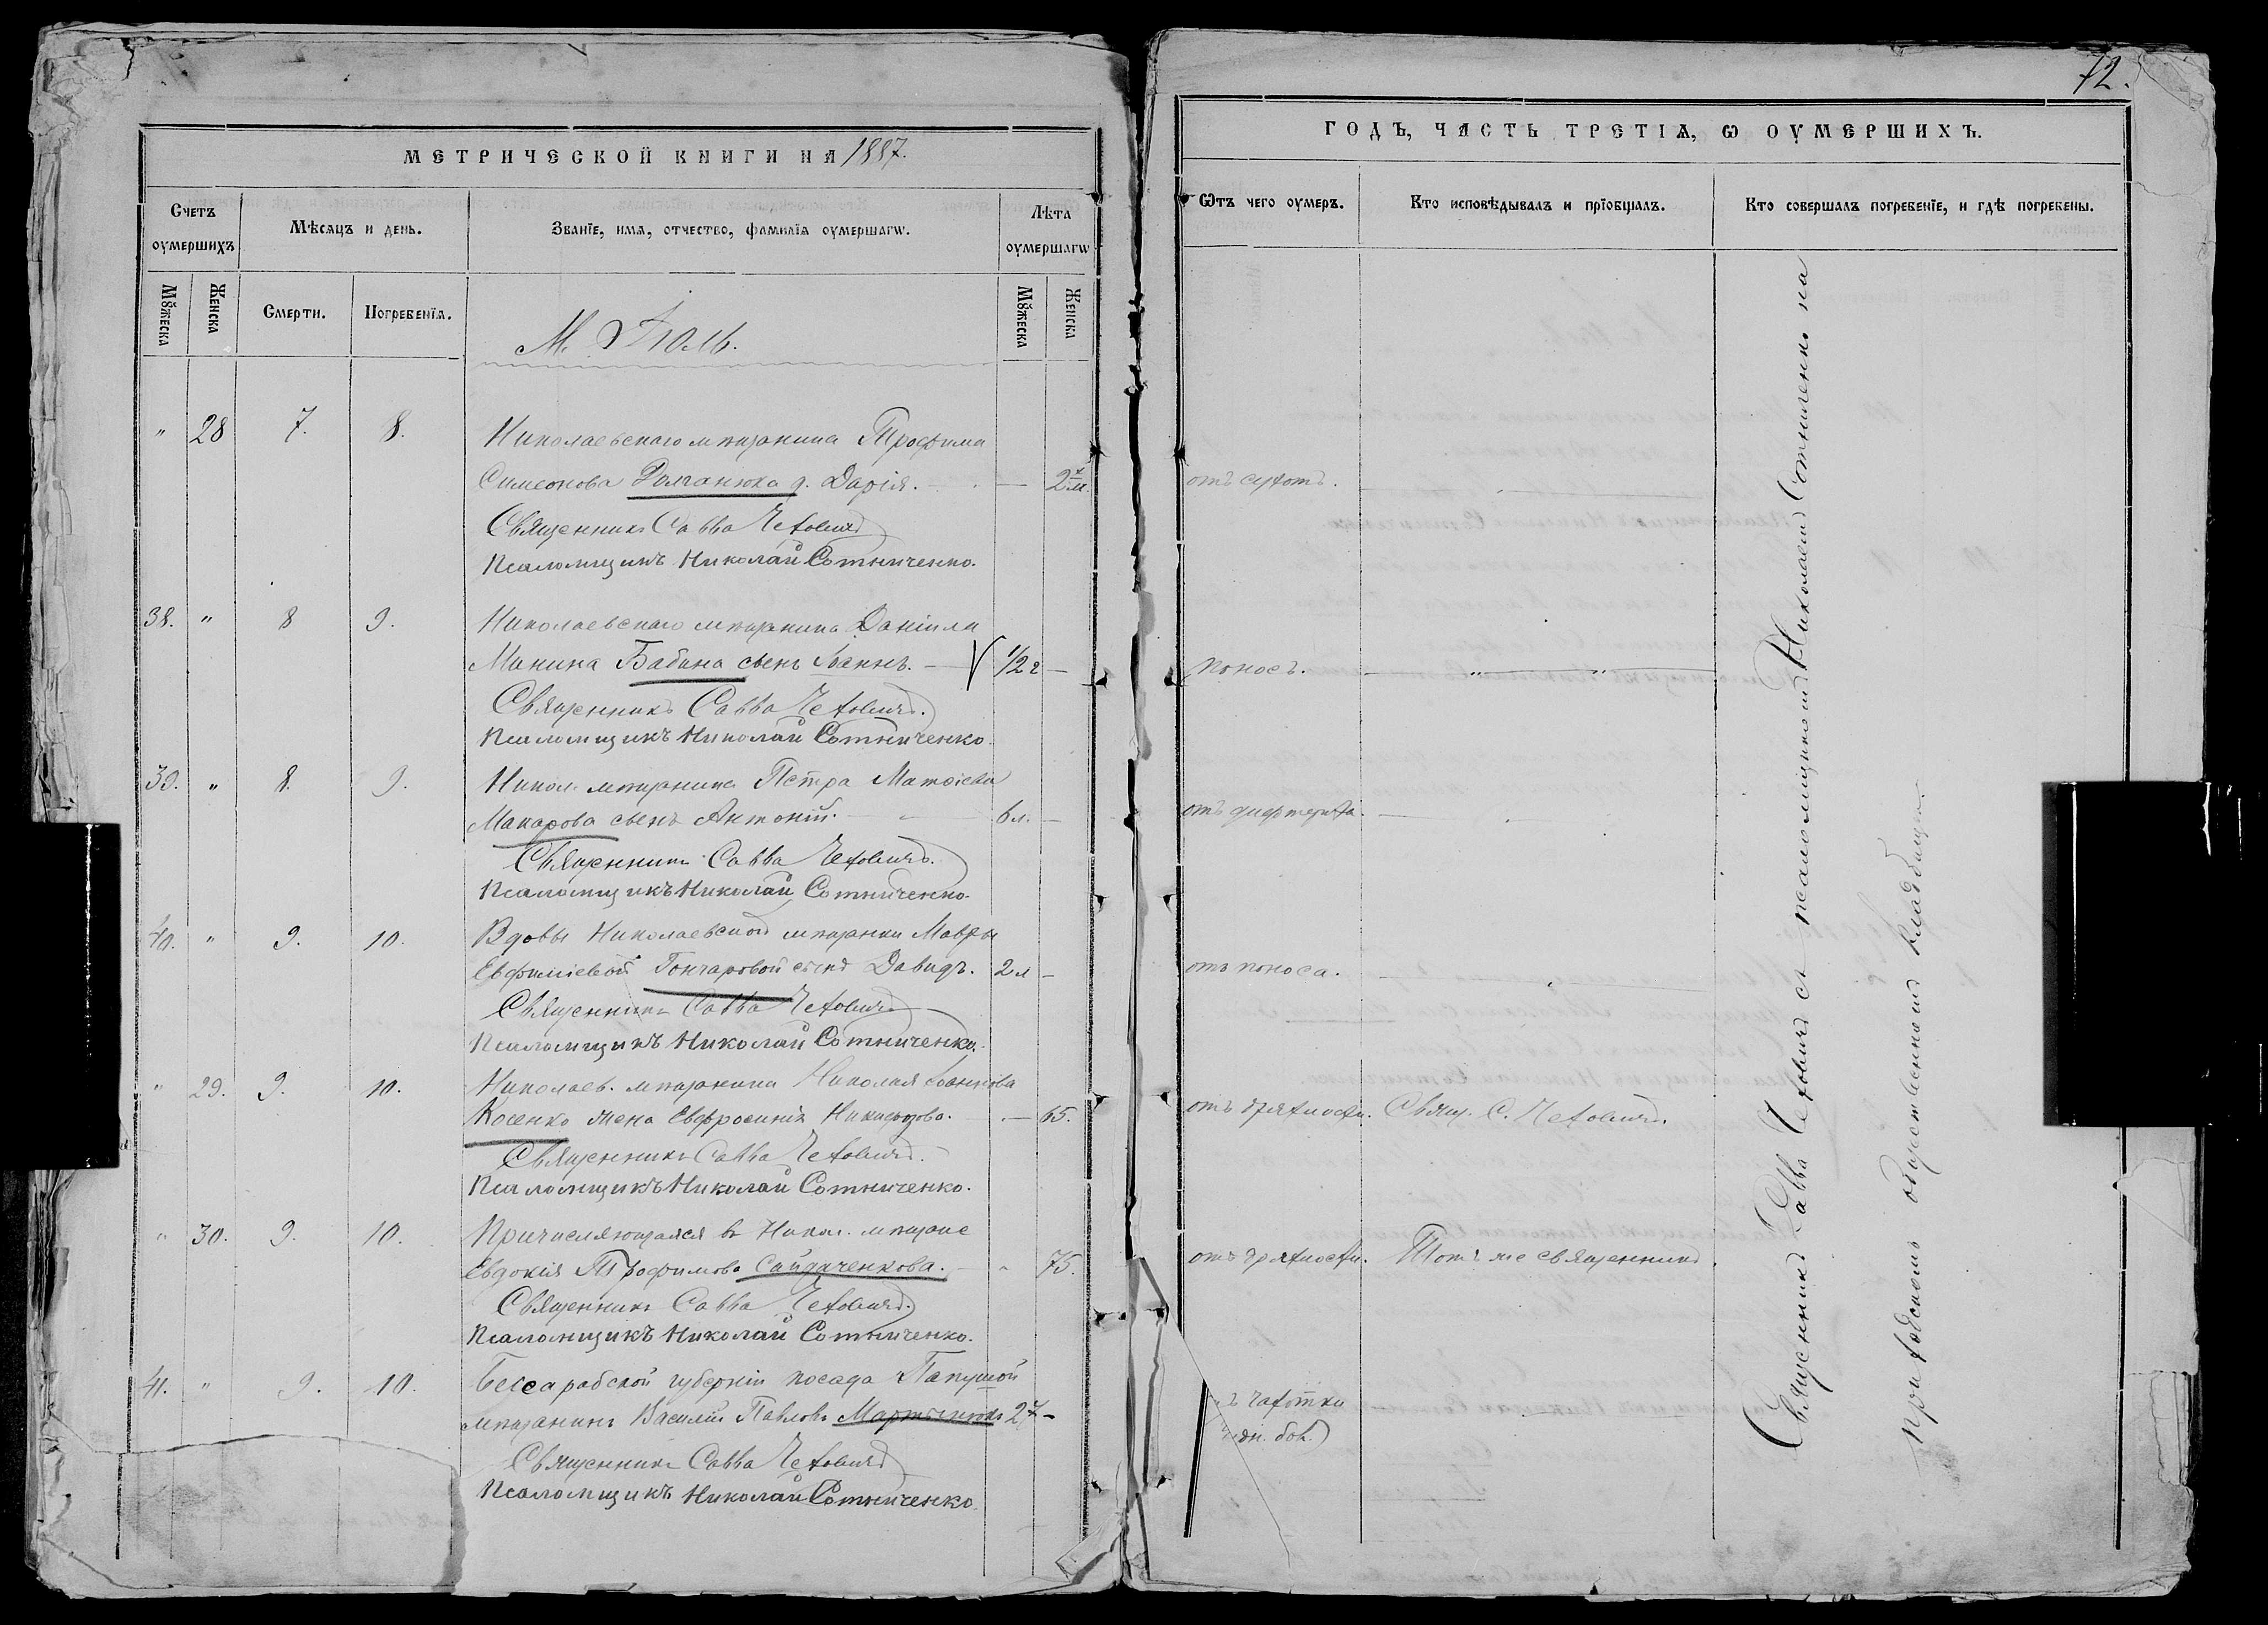 72.
МЕТРИЧЕСКОЙ КНИГИ НА 1887.
Счетъ оумершихъ
Мѣсяцъ и день.
Званїе, имя, отчество, фамилїя оумершагѡ.
Лѣта оумершагѡ
Мꙋжеска
Женска
Смерти.
Погребенїя.
Мꙋжеска
Женска
М. Іюль.
" 28 7. 8. Николаевскаго мѣщанина Трофима
Симеонова д. Дарія. — 2 м.
Священникъ Савва Чеховичъ
Псаломщикъ Николай Сотниченко.
38. " 8 9. Николаевскаго мѣщанина Даніила
Минина Бабина сынъ Іоаннъ. — 1/2 г —
Священникъ Савва Чеховичъ.
Псаломщикъ Николай Сотниченко.
39. " 8. 9. Никол. мѣщанина Петра Матѳіева
Макарова сынъ Антоній. 6 л. —
Священникъ Савва Чеховичъ.
Псаломщикъ Николай Сотниченко.
40. " 9. 10. Вдовы Николаевской мѣщанки Мавры
Евфиміевой Гончаровой сынъ Давидъ. 2 л —
Священникъ Савва Чеховичъ
Псаломщикъ Николай Сотниченко.
" 29. 9. 10. Николаев. мѣщанина Николая Іоаннова
Косенко жена Евфросинія Никифорова. — 65.
Священникъ Савва Чеховичъ.
Псаломщикъ Николай Сотниченко.
" 30. 9. 10. Причисляющаяся въ Никол. мѣщане
Евдокія Трофимова Сайдаченкова. " 75.
Священникъ Савва Чеховичъ.
Псаломщикъ Николай Сотниченко.
41. " 9. 10. Бессарабской губерніи посада Папушой
мѣщанинъ Василій Павловъ Мартынюкъ 27 —
Священникъ Савва Чеховичъ
Псаломщикъ Николай Сотниченко.
ГОДЪ, ЧАСТЬ ТРЕТІѦ, Ѡ ОУМЕРШИХЪ.
Ѿтъ чего оумеръ.
Кто исповѣдывалъ и прїобщалъ.
Кто совершалъ погребенїе, и гдѣ погребены.
отъ сухотъ.
поносъ. — " — " —
отъ дифтерита. —
отъ поноса. —
отъ дряхлости. Свящ. С. Чеховичъ.
отъ дряхлости. Тотъ же священникъ.
ъ чахотки
Священникъ Савва Чеховичъ съ псаломщикомъ Николаемъ Сотниченко на
приходскомъ общественномъ кладбищѣ.